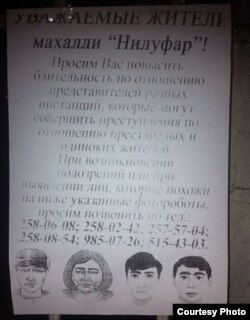 УВАЖАЕМЫЕ ЖИТЕЛИ
махалли "Нилуфар"!
Просим Вас повысить
блительность по отношению
представителей разных
инстанций, которые могут
совершить преступления по
отношению престарелых и
одиноких жителей.
При возникновении
подозрений или при
выявлении лиц, которые похожи
на ниже указанные фотороботы,
просим позвонить по тел.:
258-06-08; 258-02-42, 257-57-04;
258-08-54; 985-07-26; 515-43-03.
Courtesy Photo